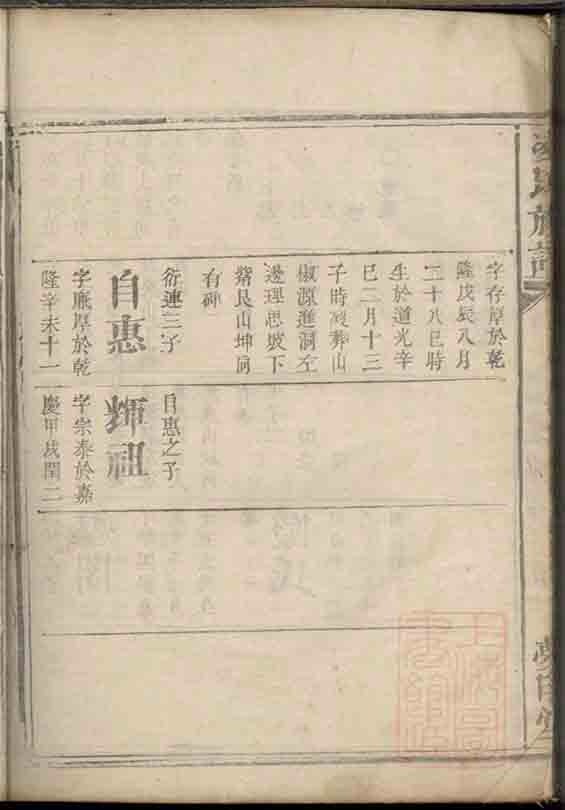 族譜
字存厚於乾
隆戊辰八月
二十八巳時
生於道光辛
巳二月十三
子時葬山
椒源進洞左
邊理思坡下
艮山坤向
有碑
衍蓮三子
自惠
字厚於乾
隆辛未十一
自惠之子
輝祖
字宗泰於嘉
慶甲戌閏二